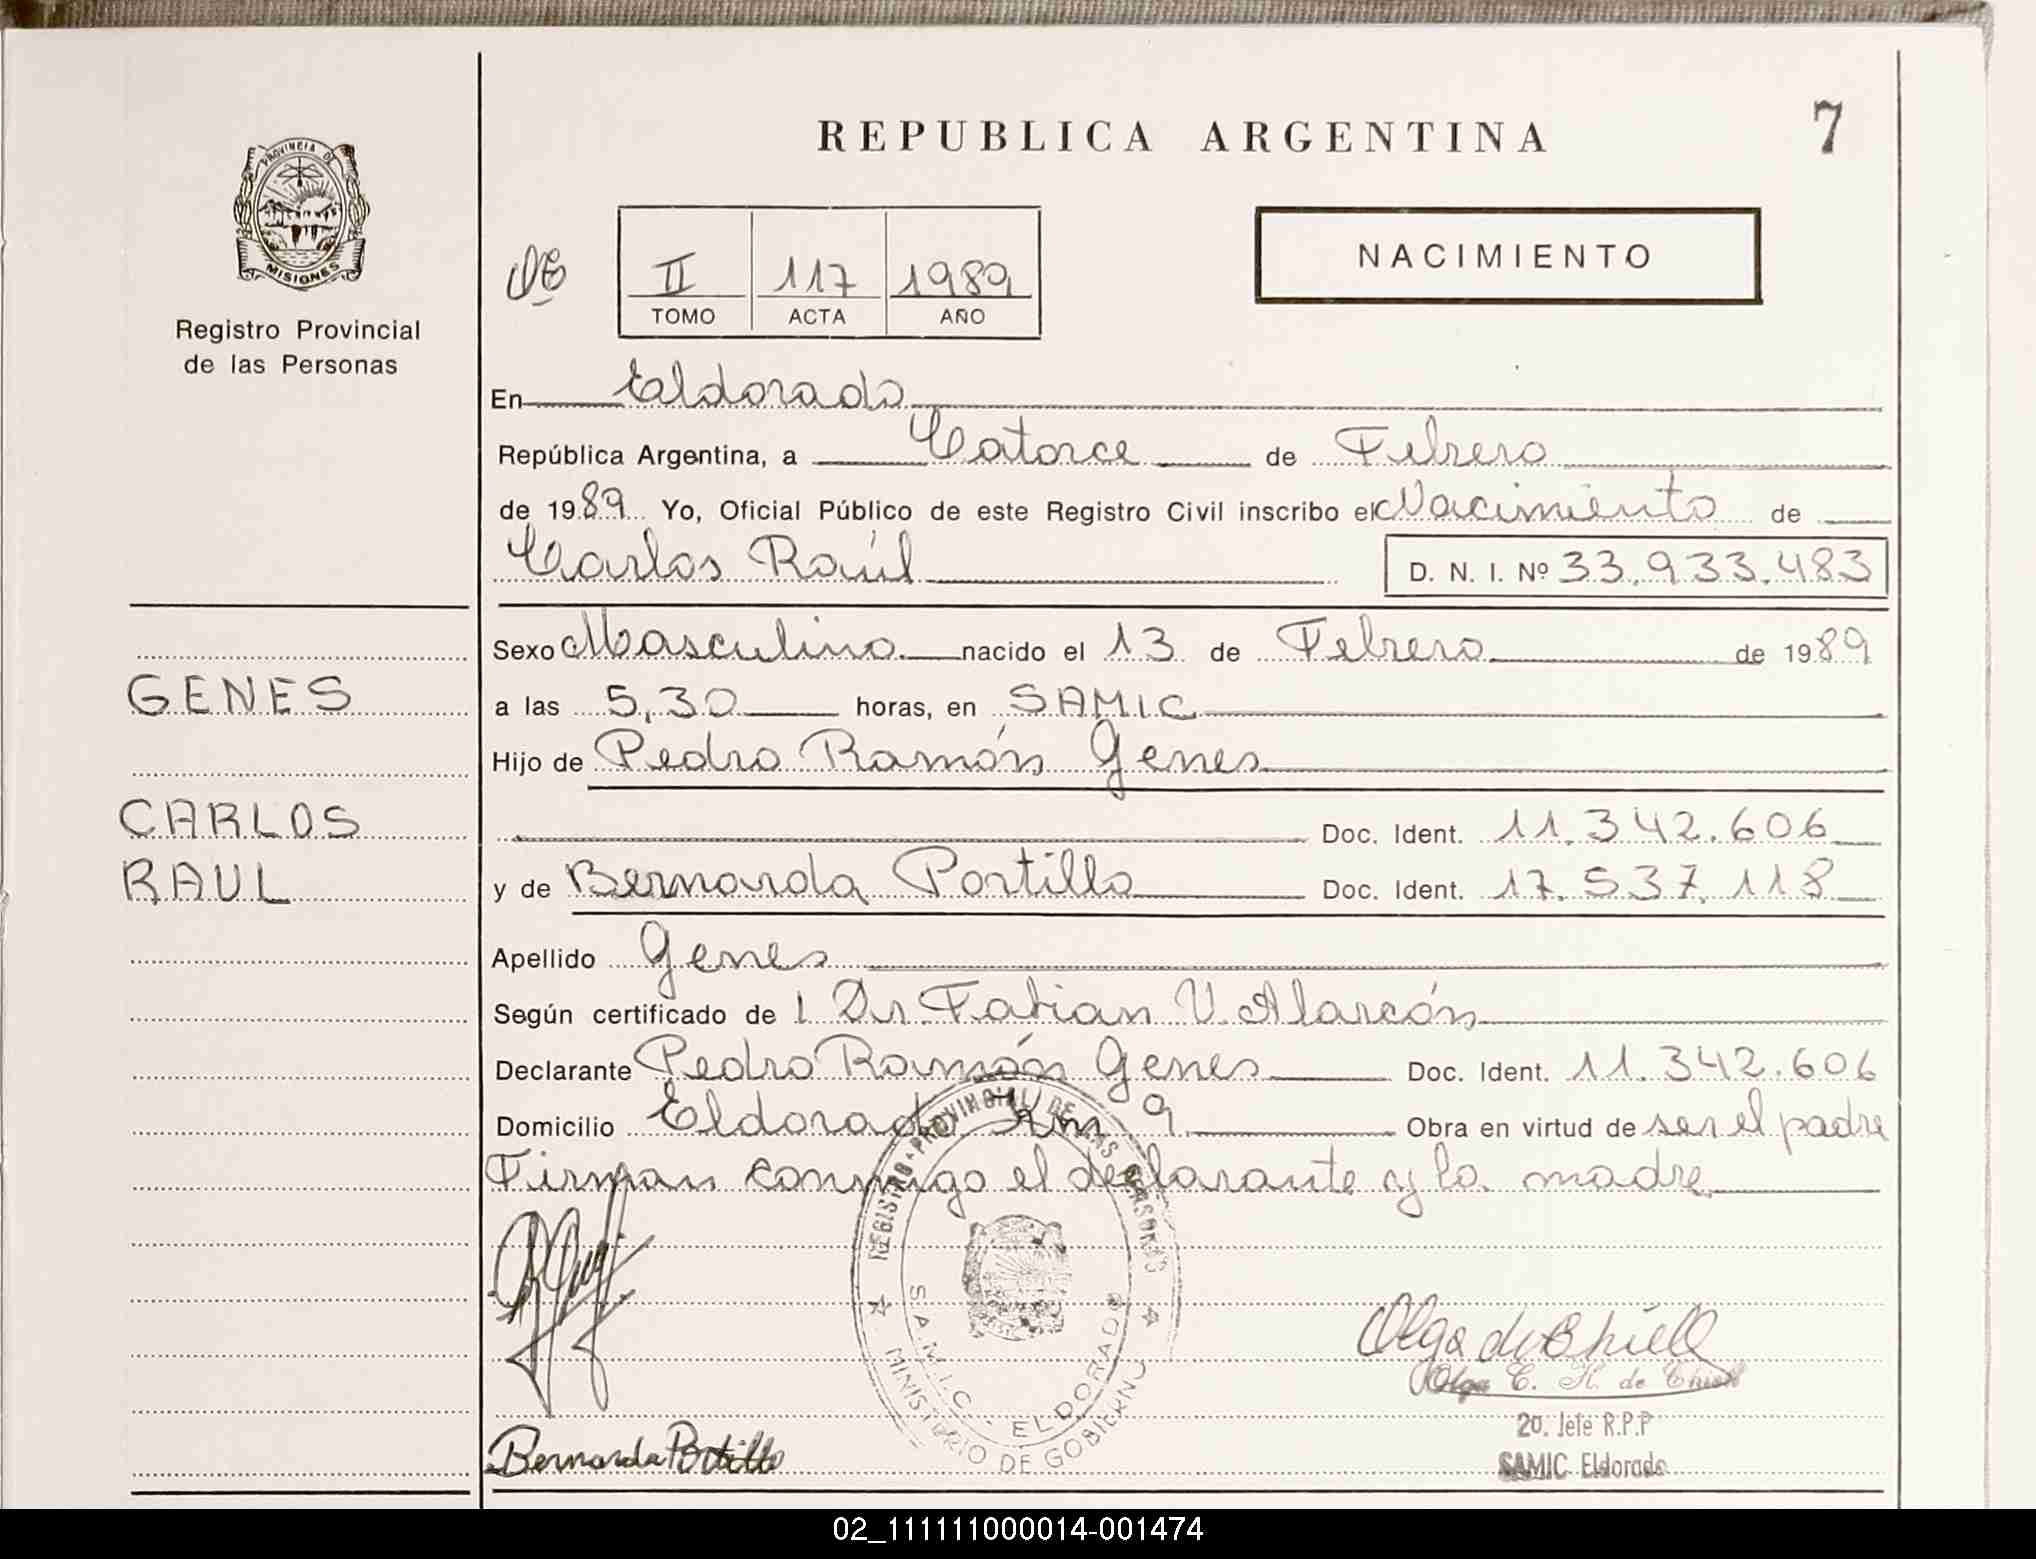 REPUBLICA ARGENTINA
7
PROVINCIA DE
MISIONES
Registro Provincial
de las Personas
II 117 1989
TOMO ACTA AÑO
NACIMIENTO
En Eldorado
República Argentina, a Catorce de Febrero
de 1989 Yo, Oficial Público de este Registro Civil inscribo el Nacimiento de
Carlos Raúl D. N. I. Nº 33.933.483
Sexo Masculino nacido el 13 de Febrero de 1989
GENES
a las 5,30 horas, en SAMIC
Hijo de Pedro Ramón Genes
CARLOS
Doc. Ident. 11.342.606
RAUL
y de Bernarda Portillo Doc. Ident. 17.537.118
Apellido Genes
Según certificado de l Dr. Fabian V. Alarcón
Declarante Pedro Ramón Genes Doc. Ident. 11.342.606
Domicilio Eldorado Km 9 Obra en virtud de ser el padre
Firman conmigo el declarante y la madre
REGISTRO PROVINCIAL DE LAS PERSONAS
S.A.M.I.C. - ELDORADO
MINISTERIO DE GOBIERNO
Olga de Chiell
Olga C. K. de Chiell
2o. Jefe R.P.P
SAMIC Eldorado
Bernarda Portillo
02_111111000014-001474